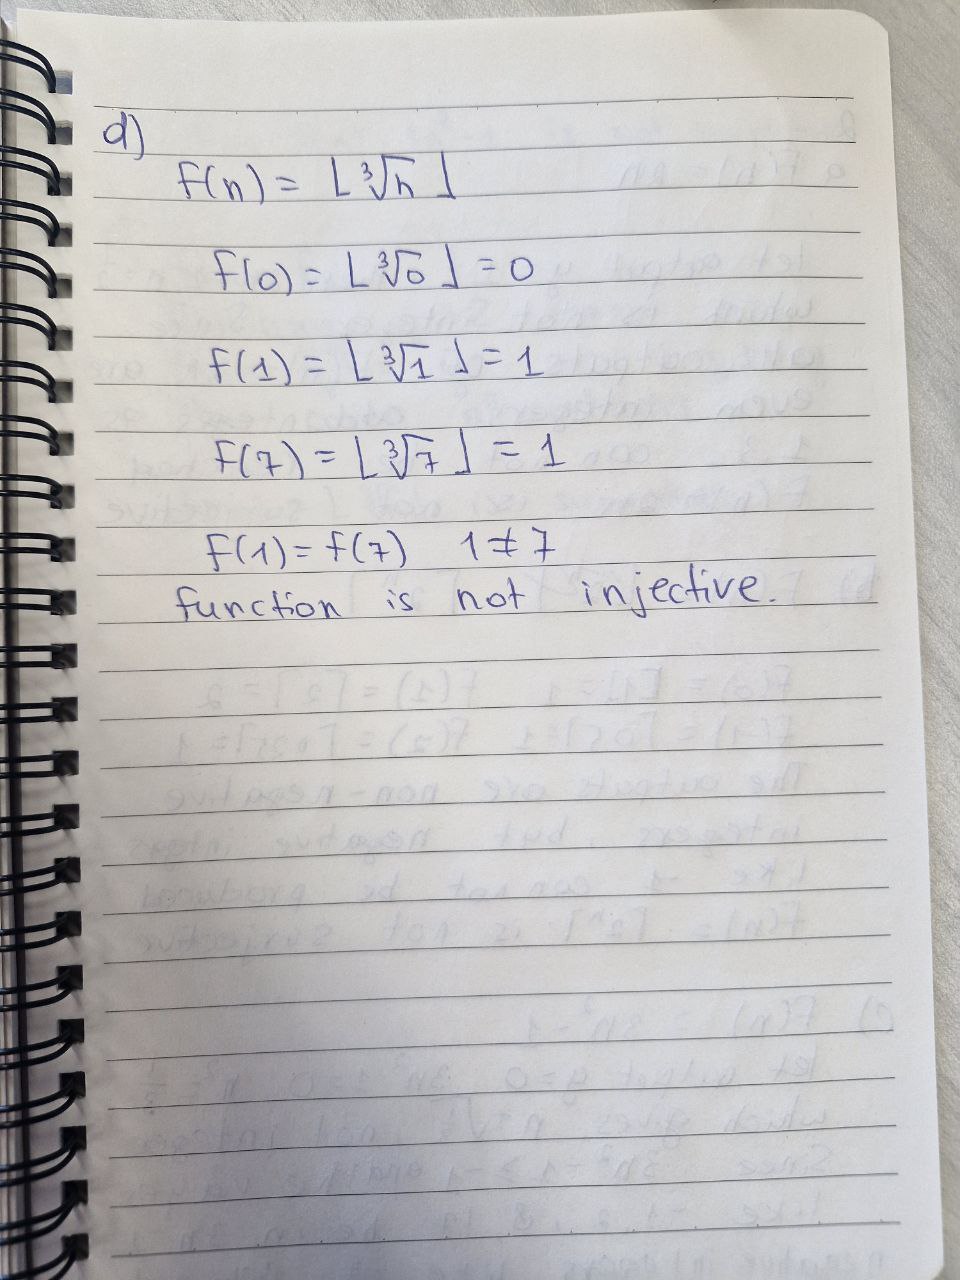 d)
f(n) = ⌊∛n⌋
f(0) = ⌊∛0⌋ = 0
f(1) = ⌊∛1⌋ = 1
f(7) = ⌊∛7⌋ = 1
f(1) = f(7) 1 ≠ 7
function is not injective.